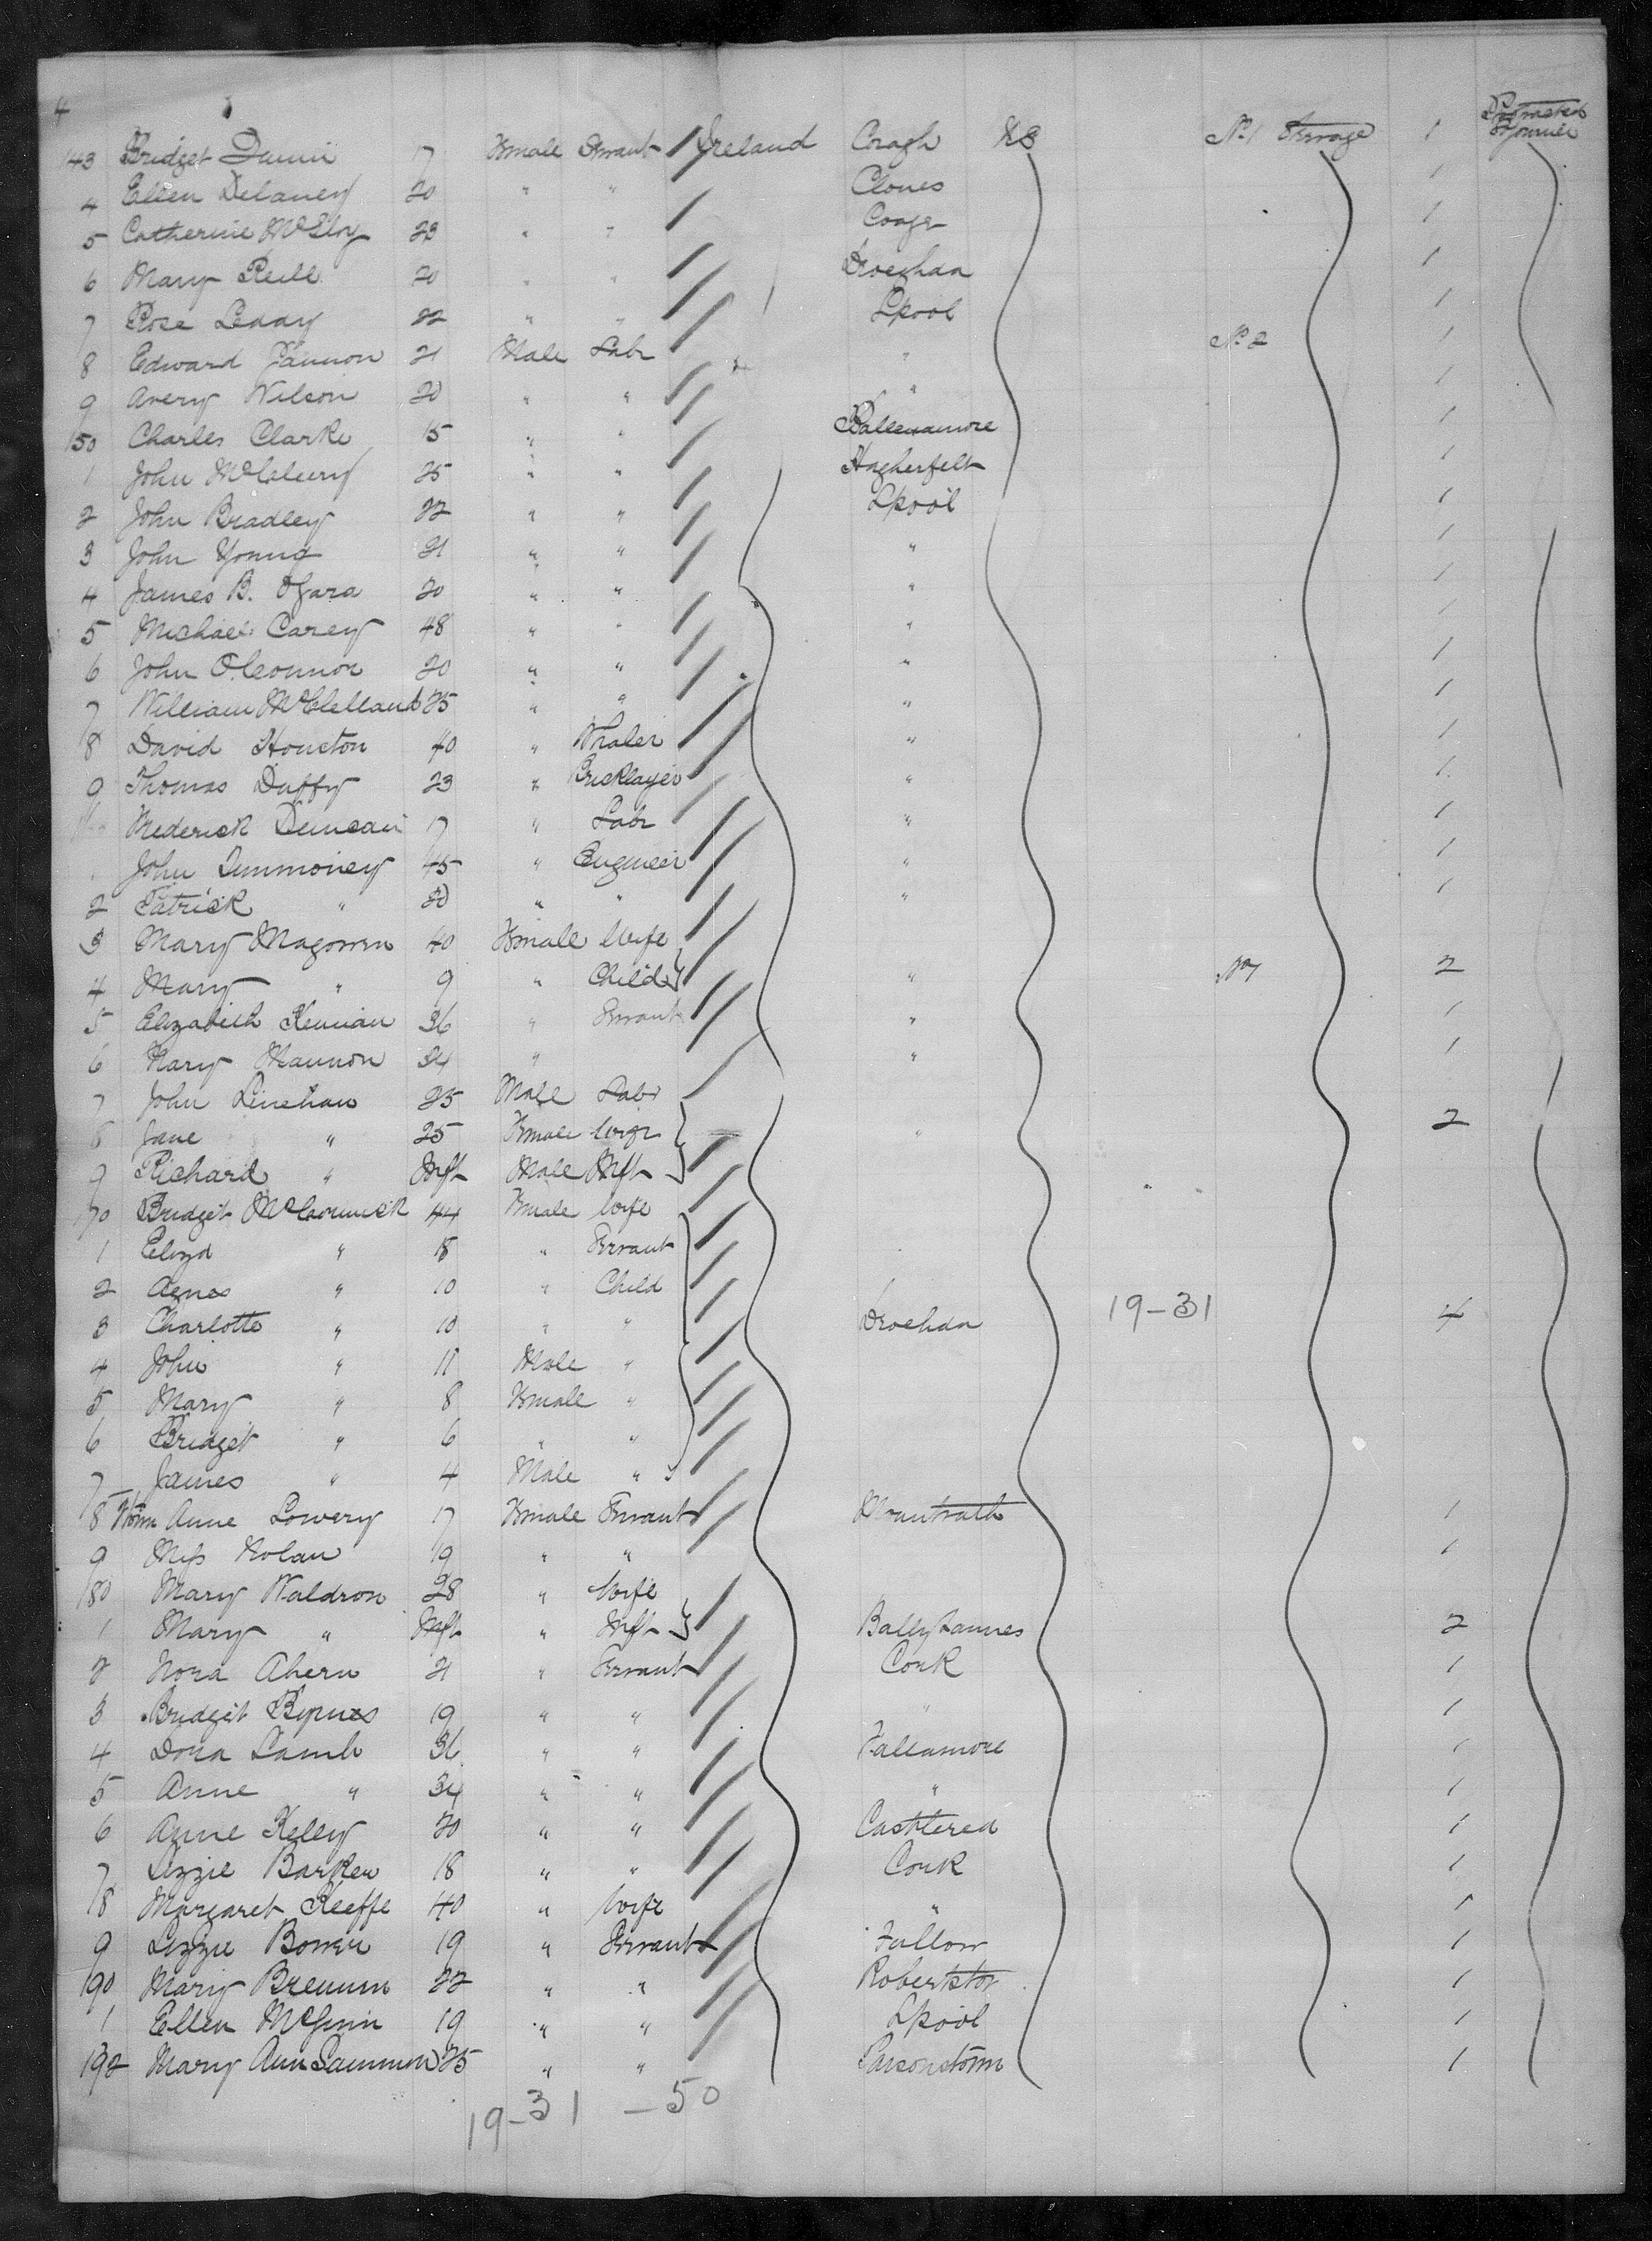 4
Protracted Sojourn
143 Bridget Dunn 17 Female Servant Ireland Coagh US No 1 Steerage 1
4 Ellen Delaney 20 " " Clones 1
5 Catherine McElroy 23 " " Coagh 1
6 Mary Reill 20 " " Drogheda 1
7 Rose Leddy 22 " " Lpool 1
8 Edward Fannon 21 Male Labr " No 2 1
9 Avery Wilson 20 " " " 1
150 Charles Clarke 15 " " Ballinamore 1
1 John McCleery 25 " " Magherfelt 1
2 John Bradley 22 " " Lpool 1
3 John Young 21 " " " 1
4 James B. OGara 20 " " " 1
5 Michael Carey 48 " " " 1
6 John O'Connor 20 " " " 1
7 William McClelland 25 " " " 1
8 David Houston 40 " " 1
9 Thomas Duffy 23 " Bricklayer " 1
Frederick Duncan 17 " Labr " 1
John Timmoney 45 " Engineer " 1
2 Patrick " 20 " " " 1
3 Mary Magowen 40 Female Wife
4 Mary " 9 " Child " No 1 2
5 Elizabeth 36 " Servant " 1
6 Mary Mannon 24 " " 1
7 John Linehan 25 Male Labr
8 Jane " 25 Female Wife " 2
9 Richard " Inft Male Inft
170 Bridget McCormick 44 Female Wife
1 Eliza " 18 " Servant
2 Agnes " 10 " Child
3 Charlotte " 10 " " Drogheda 19-31 4
4 John " 11 Male "
5 Mary " 8 Female "
6 Bridget " 6 " "
7 James " 4 Male "
8 Anne Lowery 17 Female Servant Mountrath 1
9 Miss Nolan 19 " " 1
180 Mary Waldron 28 " Wife
1 Mary " Inft " Inft 2
2 Nora Ahern 21 " Servant Cork 1
3 Bridget Byrnes 19 " " " 1
4 Dora Lamb 36 " " Tullamore 1
5 Anne " 34 " " " 1
6 Anne Kelly 20 " " Castlerea 1
7 Lizzie Barker 18 " " Cork 1
8 Margaret Keeffe 40 " Wife " 1
9 Lizzie Bower 19 " Servant Tullow 1
190 Mary Brennan 22 " " Robertstow 1
1 Ellen McGinn 19 " " Lpool 1
192 Mary Ann Sammon 25 " " Parsonstown 1
19-31 -50